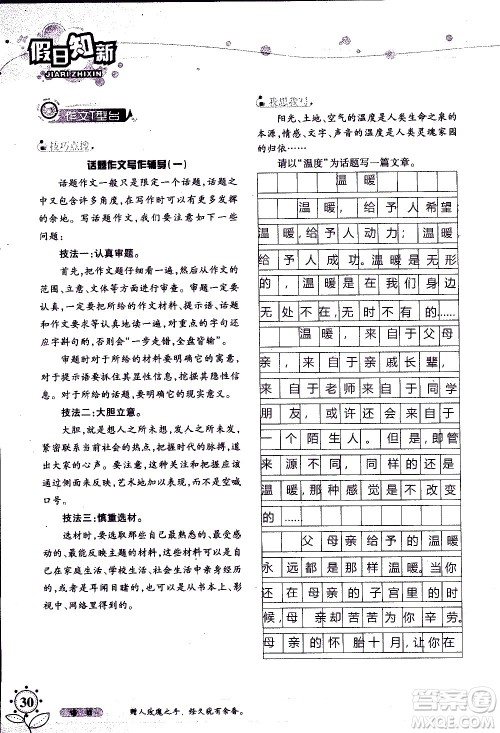 假日知新
JIARI ZHIXIN
作文T型台
技巧点拨
话题作文写作辅导(一)
话题作文一般只是限定一个话题，话题之
中又包含许多角度，在写作时可以有许多发挥
的余地。写话题作文，我们要注意以下一些
问题：
技法一：认真审题。
首先，把作文题仔细看一遍，然后从作文的
范围、立意、文体等方面进行思考。审题一定要
认真，一定要把所给的作文材料、提示语、话题
和作文要求等认真地读一读，对重点的字句还
应作些斟酌，否则会“一步走错，全盘皆输”。
审题时对于所给的材料要明确它的寓意，
对于提示语要抓住其显性信息，挖掘其隐性信
息。对于所给的话题，一定要弄清它的含义。
技法二：大胆立意。
大胆，就是想人之所未想，发人之所未发，
紧密联系当前社会的热点，把握时代的脉搏，道
出大家的心声。要注意，这种关注并不是直接
的干预或反映，艺术地加以体现，切忌空喊
口号。
技法三：慎重选材。
越能反映主题的材料越好，可以是自己在
家庭生活、学校生活、社会生活中亲身经历的，
或者是耳闻目睹的，也可以是从书本上、影
视中、网络里得到的。
30
赠人玫瑰之手，经久犹有余香。
我思我写
阳光、土地、空气的温度是人类生命之泉的
本源，情感、文字、声音的温度是人类灵魂家园
的归依……
请以“温度”为话题写一篇文章。
温暖
温暖，给予人希望
温暖，给予人动力；温
暖，给予人成功。温暖，
无处不在，无时不有的。
温暖，来自于父母
亲，来自于亲戚长辈，
来自于老师来自于同学
朋友，或许还会来自于
一个陌生人。但是，即管
来源不同，但是，它的温
暖，那种感觉是不改变
的……
父母亲给予的温暖
永远都是很多的。当你
还在母亲的肚子里的时
候，母亲却苦苦为你辛劳。
母亲的怀胎十月，让你